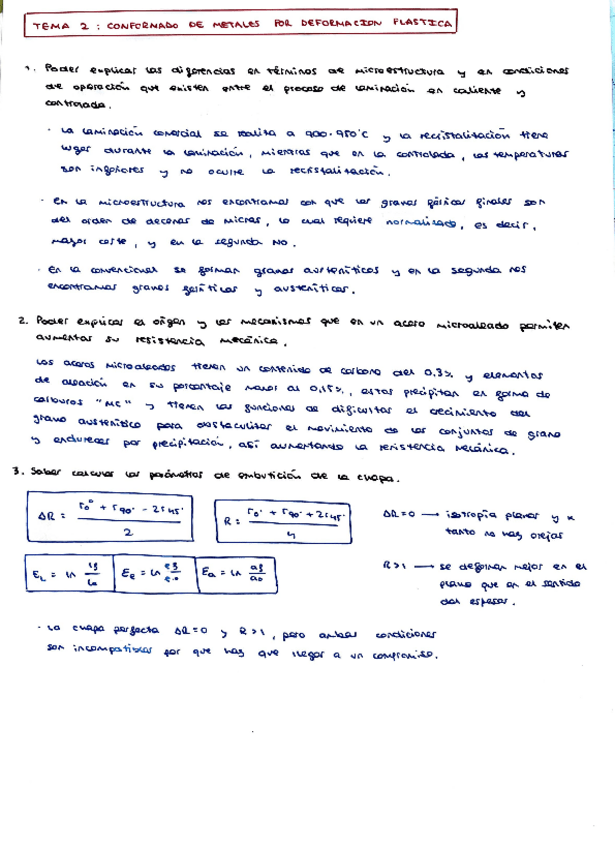 TEMA 2 : CONFORMADO DE METALES POR DEFORMACION PLASTICA
1. Poder explicar las diferencias en términos de microestructura y en condiciones
de operación que existen entre el proceso de laminación en caliente y
controlada.
· La laminación comercial se realiza a 900-950°C y la recristalización tiene
lugar durante la laminación, mientras que en la controlada, las temperaturas
son inferiores y no ocurre la recristalización.
· En la microestructura nos encontramos con que los granos férricos finales son
del orden de decenas de micras, lo cual requiere normalizado, es decir,
mayor coste, y en la segunda no.
· En la convencional se forman granos austeníticos y en la segunda nos
encontramos granos ferríticos y austeníticos.
2. Poder explicar el origen y los mecanismos que en un acero microaleado permiten
aumentar su resistencia mecánica.
Los aceros microaleados tienen un contenido de carbono del 0,3% y elementos
de aleación en su porcentaje menor al 0,15%, estos precipitan en forma de
carburos "MC" y tienen las funciones de dificultar el crecimiento del
grano austenítico para obstaculizar el movimiento de los conjuntos de grano
y endurecer por precipitación, así aumentando la resistencia mecánica.
3. Saber calcular los parámetros de embutición de la chapa.
ΔR = (r0° + r90° - 2r45°) / 2
R = (r0° + r90° + 2r45°) / 4
ΔR=0 → isotropía planar y x
tanto no hay orejas
EL = ln lf/l0
Ee = ln ef/e0
Ea = ln af/a0
R>1 → se deforman mejor en el
plano que en el sentido
del espesor.
· La chapa perfecta ΔR=0 y R>1, pero ambas condiciones
son incompatibles por que hay que llegar a un compromiso.